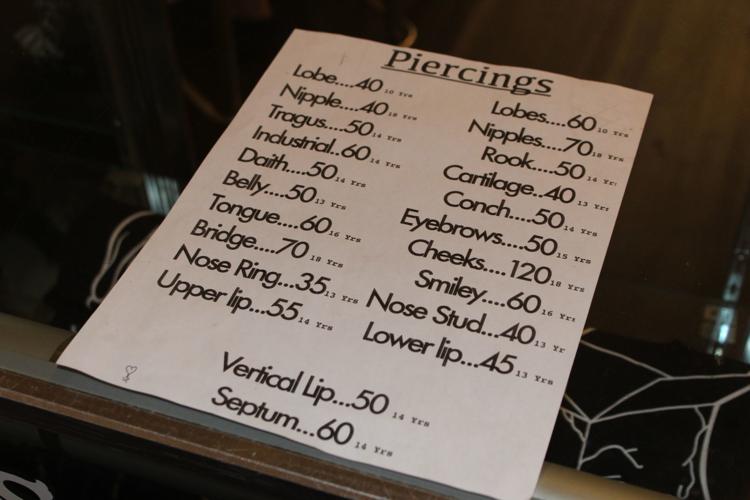 Piercings
Lobe....40 10 Yrs
Nipple....40 18 Yrs
Tragus....50 14 Yrs
Industrial..60 14 Yrs
Daith....50 14 Yrs
Belly....50 13 Yrs
Tongue....60 16 Yrs
Bridge....70 18 Yrs
Nose Ring...35 13 Yrs
Upper lip...55 14 Yrs
Lobes....60 10 Yrs
Nipples....70 18 Yrs
Rook....50 14 Yrs
Cartilage..40 13 Yrs
Conch....50 14 Yrs
Eyebrows....50 15 Yrs
Cheeks....120 18 Yrs
Smiley....60 16 Yrs
Nose Stud...40 13 Yr
Lower lip...45 13 Yrs
Vertical Lip...50 14 Yrs
Septum...60 14 Yrs